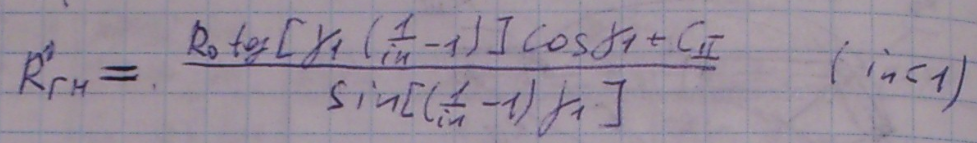 R'гн = (R₀ tg[γ₁(1/iн − 1)] cos γ₁ + C_II) / (sin[(1/iн − 1)γ₁]) (iн < 1)